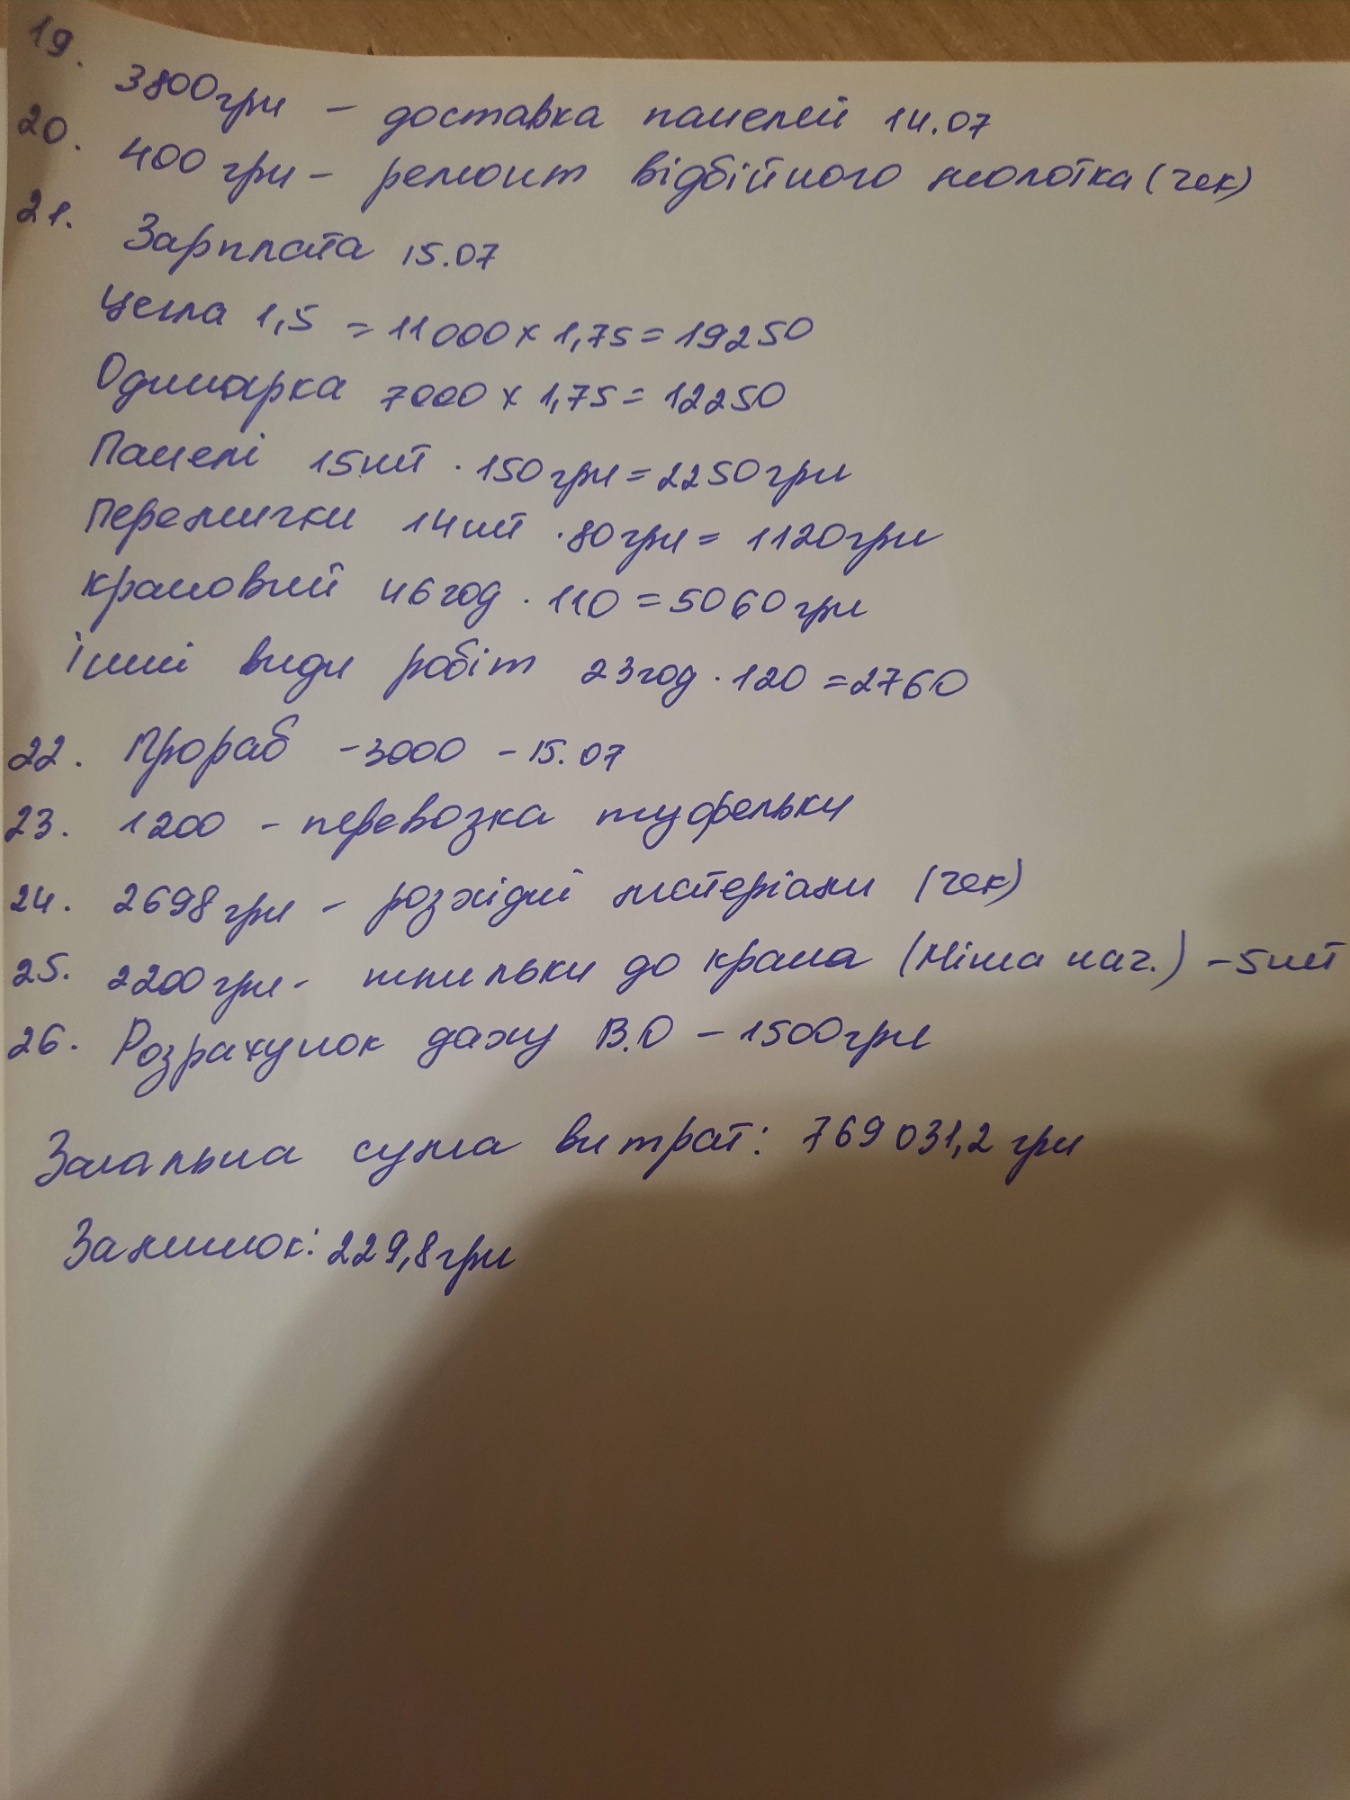 19. 3800грн – доставка панелей 14.07
20. 400 грн – ремонт відбійного молотка (чек)
21. Зарплата 15.07
Цегла 1,5 = 11000 х 1,75 = 19250
Одинарка 7000 х 1,75 = 12250
Панелі 15шт · 150грн = 2250грн
Перемички 14шт · 80грн = 1120грн
крановий 46год · 110 = 5060грн
Інші види робіт 23год · 120 = 2760
22. Прораб – 3000 – 15.07
23. 1200 – перевозка туфельки
24. 2698грн – розхідні матеріали (чек)
25. 2200грн – шпильки до крана (Міша нач.) – 5шт
26. Розрахунок даху В.О – 1500грн
Загальна сума витрат: 769 031,2 грн
Залишок: 229,8грн